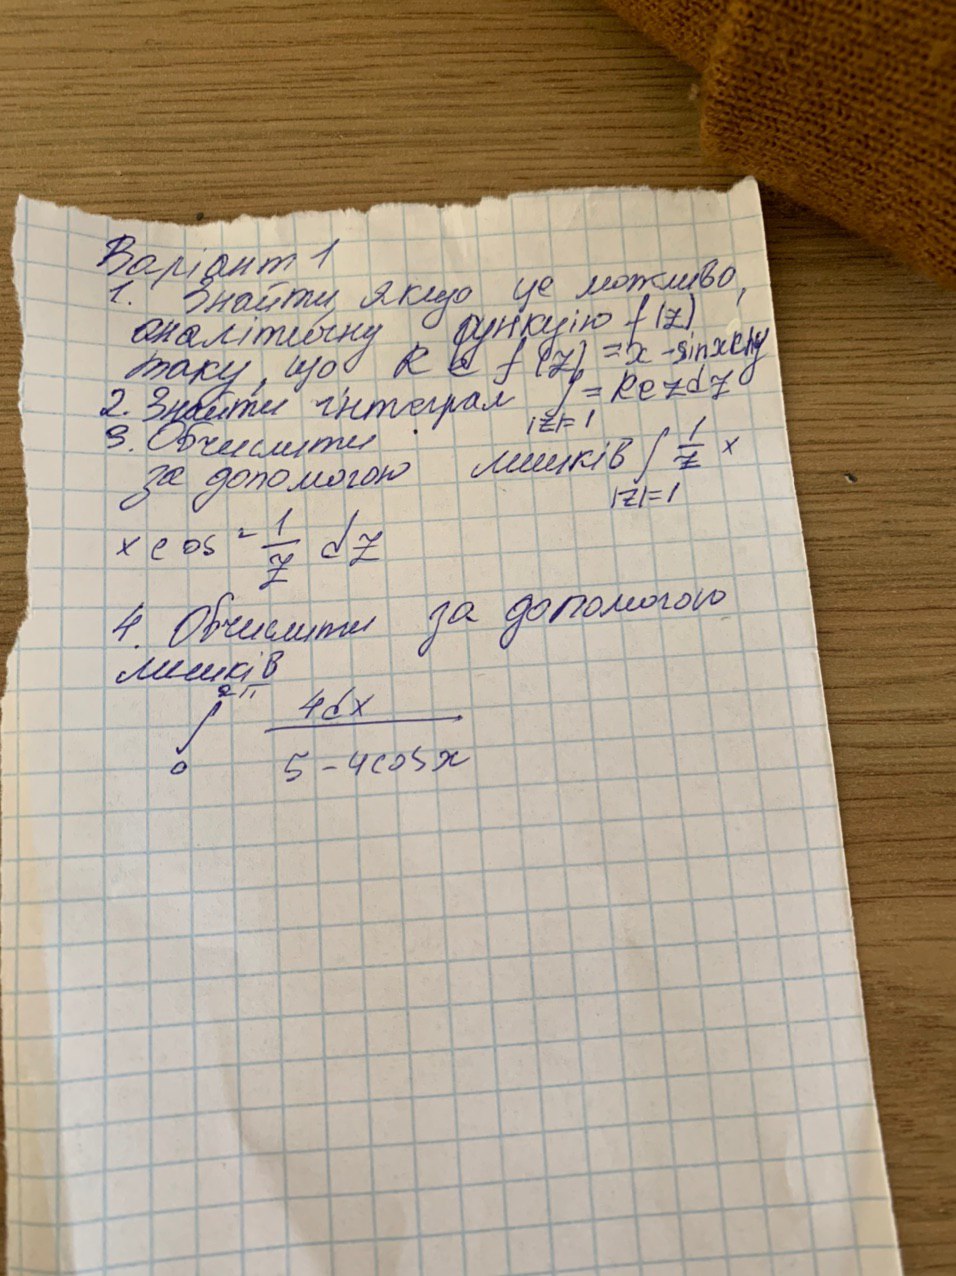 Варіант 1
1. Знайти, якщо це можливо,
аналітичну функцію f(z)
таку, що Re f(z) = x - sinx chy
2. Знайти інтеграл ∫ = Re z dz
|z|=1
3. Обчислити
за допомогою лишків ∫ 1/z ×
|z|=1
× cos² 1/z dz
4. Обчислити за допомогою
лишків
2π
∫ 4dx
0 5 - 4cosx